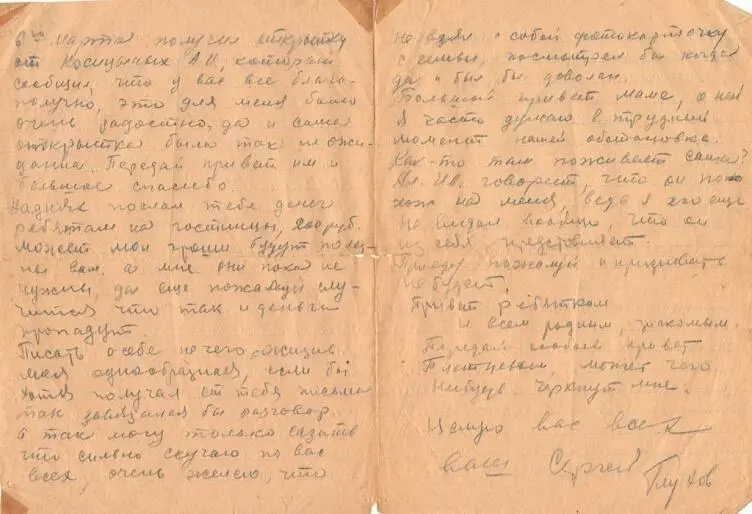 6го марта получил открытку
от Косицыных А.И, которая
сообщил, что у вас все благо-
получно, это для меня было
очень радостно, да и сама
открытка была так неожи-
данна. Передай привет им и
большое спасибо.
На днях послал тебе денег
ребятам на гостинцы, 200 руб.
Может мои гроши будут полез-
ны вам, а мне они пока не
нужны, да еще пожалуй слу-
чится что так и деньги
пропадут.
Писать о себе нечего, жизнь
моя однообразная, если бы
хотя получал от тебя письма
так завязался бы разговор.
А так могу только сазать
что сильно скучаю по вас
всех, очень жалею, что
не взял с собой фотокарточку
с семьи, посмотрел бы когда
да и был бы доволен.
Большой привет маме, о ней
я часто думаю в трудный
момент нашей обстановки.
Как-то там поживает сашка?
Ал. Ив. говорит, что он по
хож на меня, ведь я его еще
не видал вообще, что он
из себя представляет.
Приеду пожалуй и признавать
не будет.
Привет ребяткам
и всем родным, знакомым.
Передай особый привет
может чего
нибудь черкнут мне.
Целую вас всех
ваш Сергей
Глухов